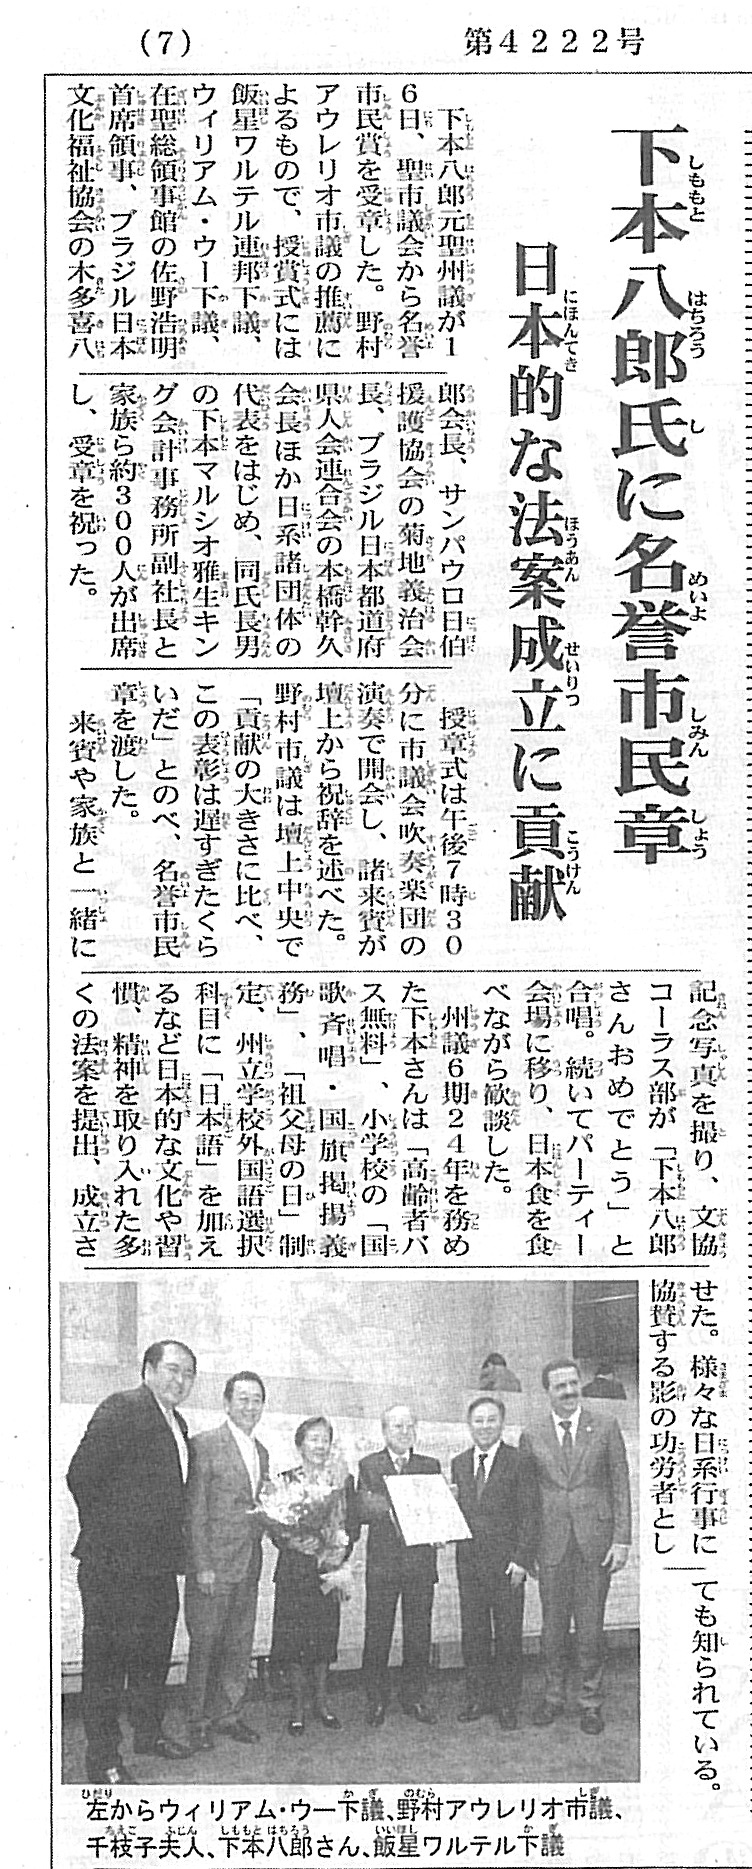 (7)
第4222号
下本八郎氏に名誉市民章
日本的な法案成立に貢献
下本八郎元聖州議が1
6日、聖市議会から名誉
市民賞を受章した。野村
アウレリオ市議の推薦に
よるもので、授賞式には
飯星ワルテル連邦下議、
ウィリアム・ウー下議、
在聖総領事館の佐野浩明
首席領事、ブラジル日本
文化福祉協会の木多喜八
郎会長、サンパウロ日伯
援護協会の菊地義治会
長、ブラジル日本都道府
県人会連合会の本橋幹久
会長ほか日系諸団体の
代表をはじめ、同氏長男
の下本マルシオ雅生キン
グ会計事務所副社長と
家族ら約300人が出席
し、受章を祝った。
授章式は午後7時30
分に市議会吹奏楽団の
演奏で開会し、諸来賓が
壇上から祝辞を述べた。
野村市議は壇上中央で
「貢献の大きさに比べ、
この表彰は遅すぎたくら
いだ」とのべ、名誉市民
章を渡した。
来賓や家族と一緒に
記念写真を撮り、文協
コーラス部が「下本八郎
さんおめでとう」と
合唱。続いてパーティー
会場に移り、日本食を食
べながら歓談した。
州議6期24年を務め
た下本さんは「高齢者バ
ス無料」、小学校の「国
歌斉唱・国旗掲揚義
務」、「祖父母の日」制
定、州立学校外国語選択
科目に「日本語」を加え
るなど日本的な文化や習
慣、精神を取り入れた多
くの法案を提出、成立さ
せた。様々な日系行事に
協賛する影の功労者とし
ても知られている。
左からウィリアム・ウー下議、野村アウレリオ市議、
千枝子夫人、下本八郎さん、飯星ワルテル下議